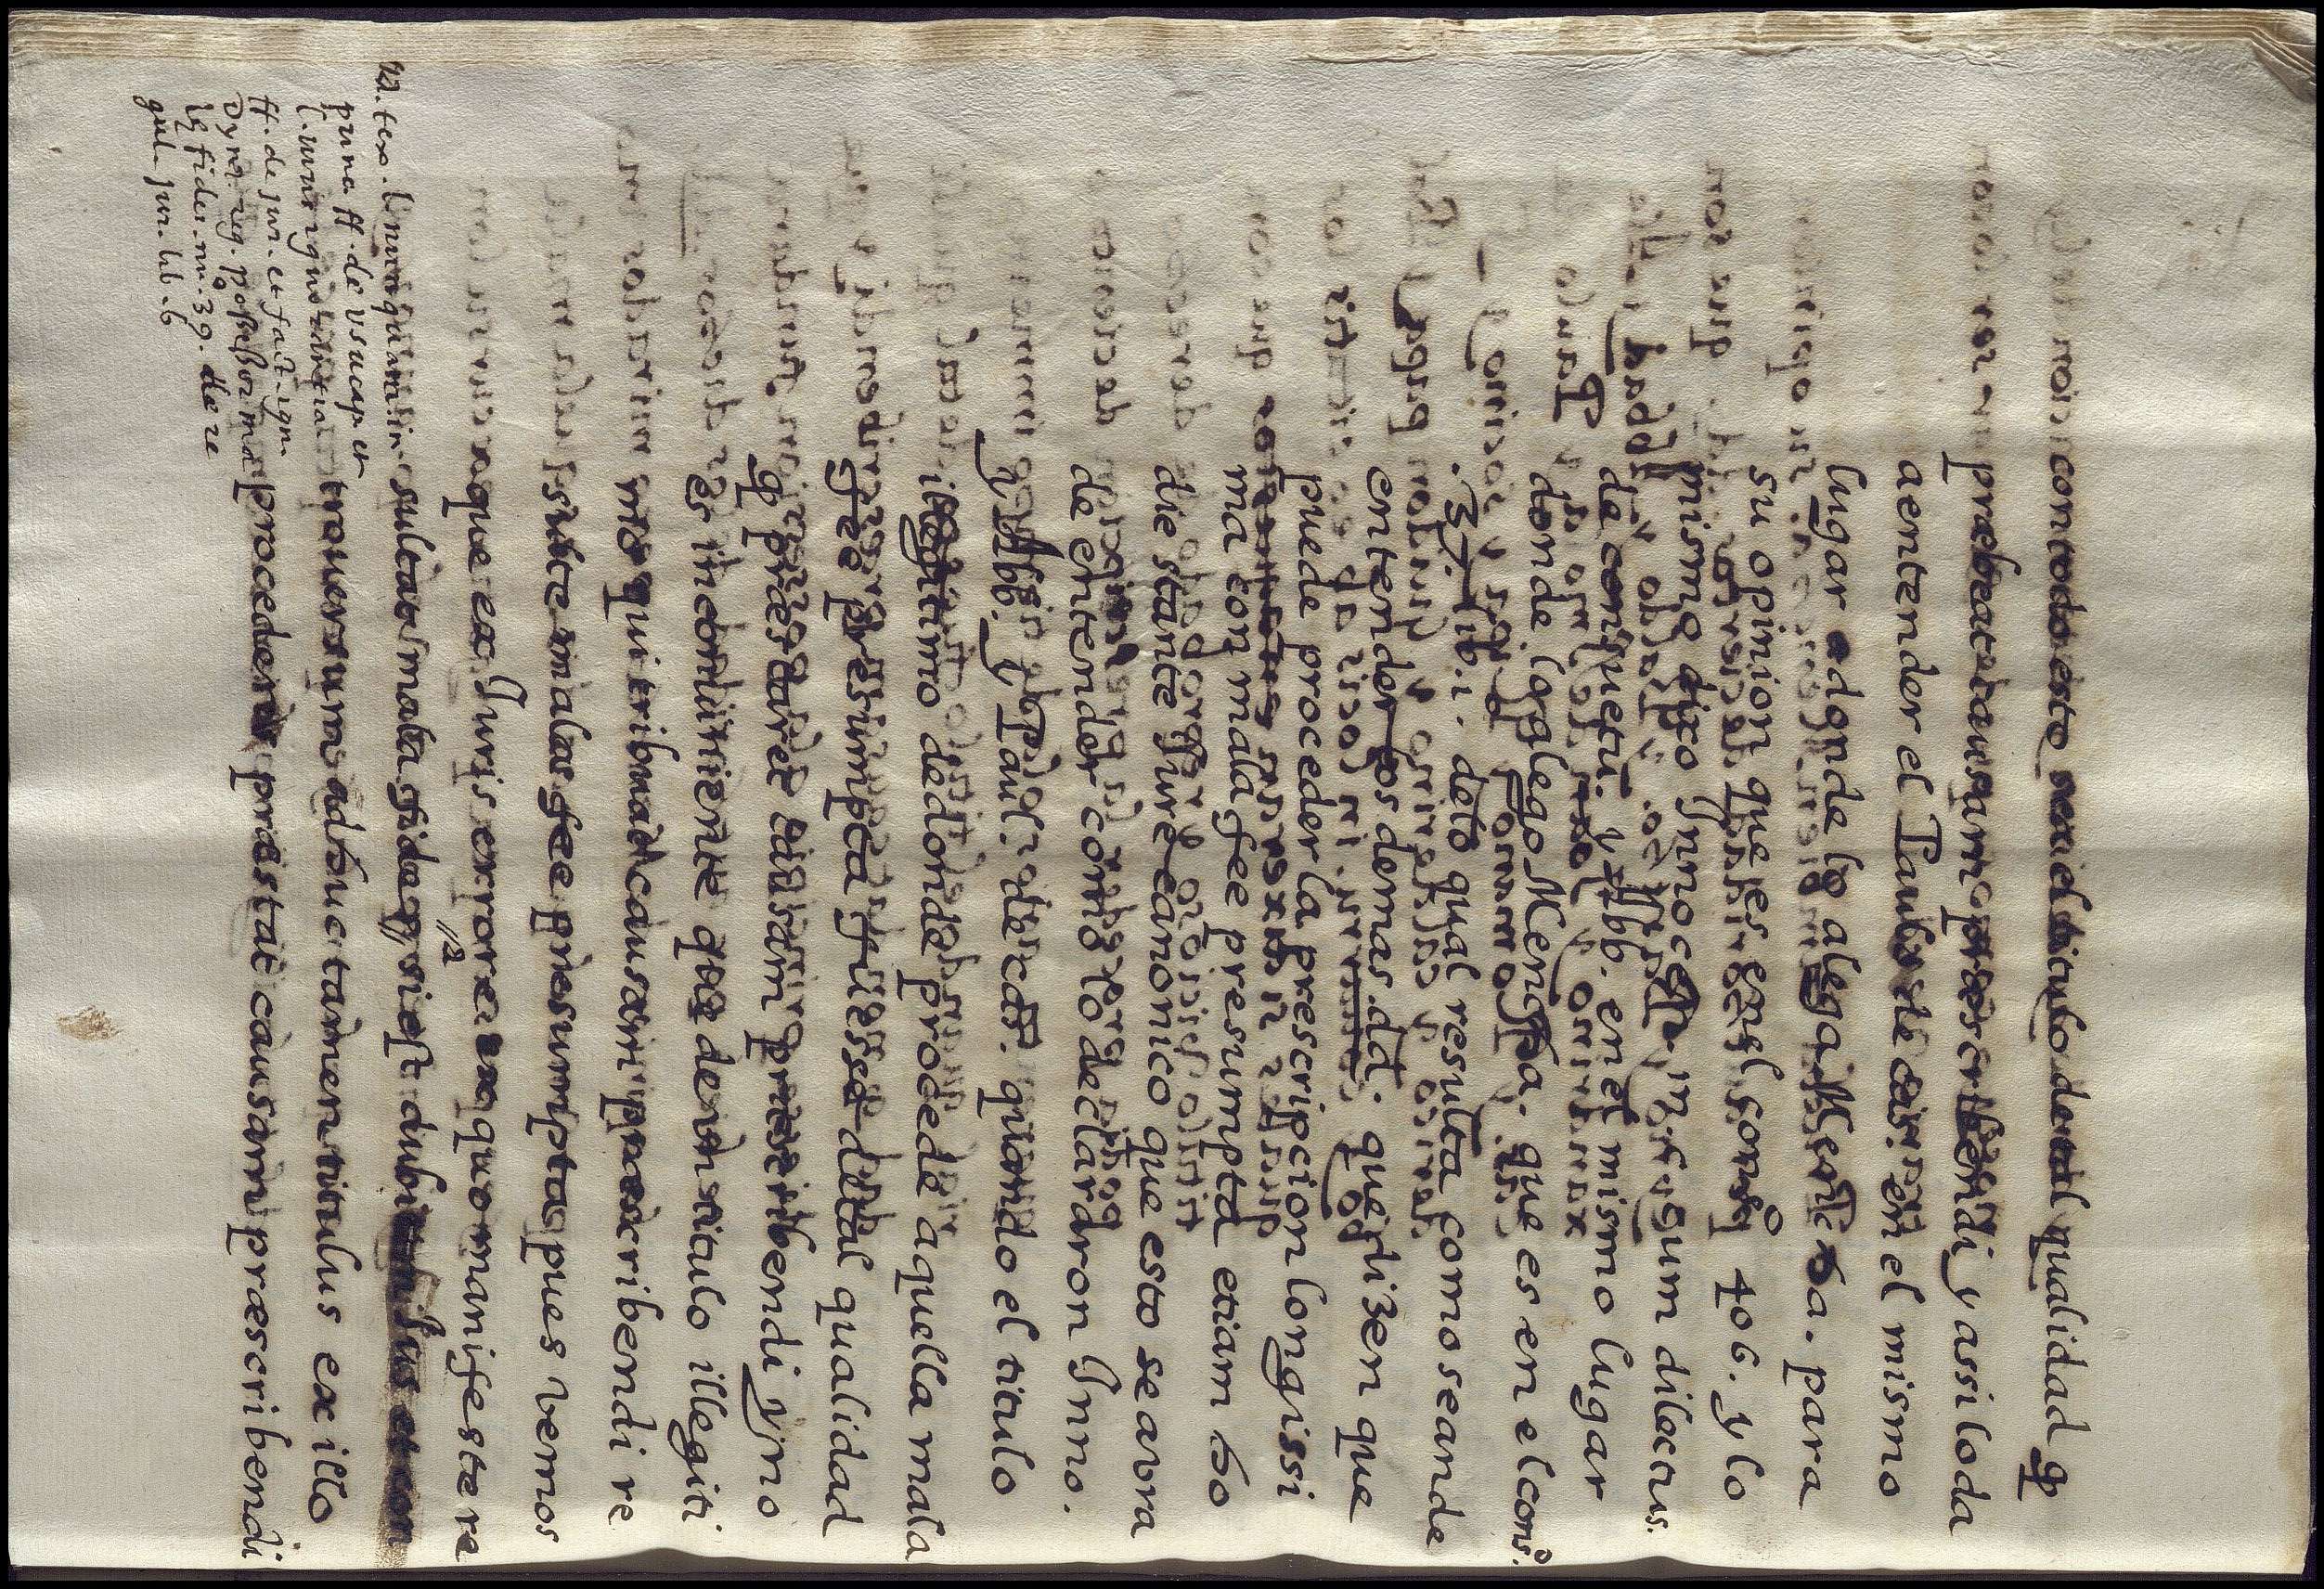 con todo esto sea el titulo de tal qualidad q
præbeat causam præscribendi y assi lo da
a entender el Paulo de cas. en el mismo
lugar adonde lo alega Menchaca. para
su opinion que es en el consº 406. y lo
mismo dixo Innocen. in c. cum dilectus.
de consuetu. y Abb. en el mismo lugar
donde lo alego Menchaca. que es en el consº.
37. lib. 1. delo qual resulta como se an de
entender los demas dd. que dizen que
puede proceder la prescripcion longissi
ma con mala fee presumpta etiam bo
die stante jure canonico que esto se avra
de entender como lo declararon Inno.
y Abb. y Paul. de cas. quando el titulo
illegitimo de donde procede aquella mala
fee presumpta fuesse de tal qualidad
q præstaret causam præscribendi y no
es inconviniente que de un titulo illegiti
mo qui tribuat causam præscribendi re
sulte mala fee presumpta pues vemos
que ex Juris errore ex quo manifeste re
sultat mala fides q si est dubi
tituli transversum adhuc tamen titulus ex illo
procedens præstat causam præscribendi
ut. tex. l. nunquam in
puna ff. de usucap. et
l. juris ignorantia
ff. de jur. et fact. ign.
Dyn. reg. possessor ma
læ fidei. nu. 39. de re
gul. jur. lib. 6